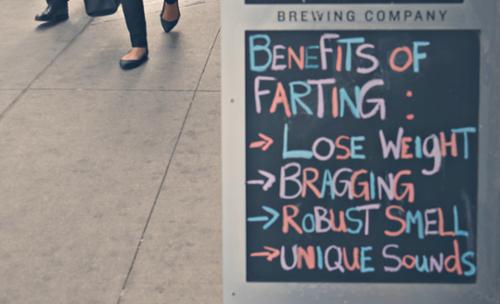 BREWING COMPANY
BENEFITS OF
FARTING :
→ LOSE WEIGHT
→ BRAGGING
→ ROBUST SMELL
→ UNIQUE SOUNDS